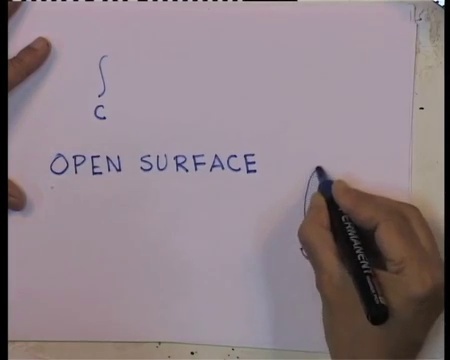 ∫
C
OPEN SURFACE
PERMANENT